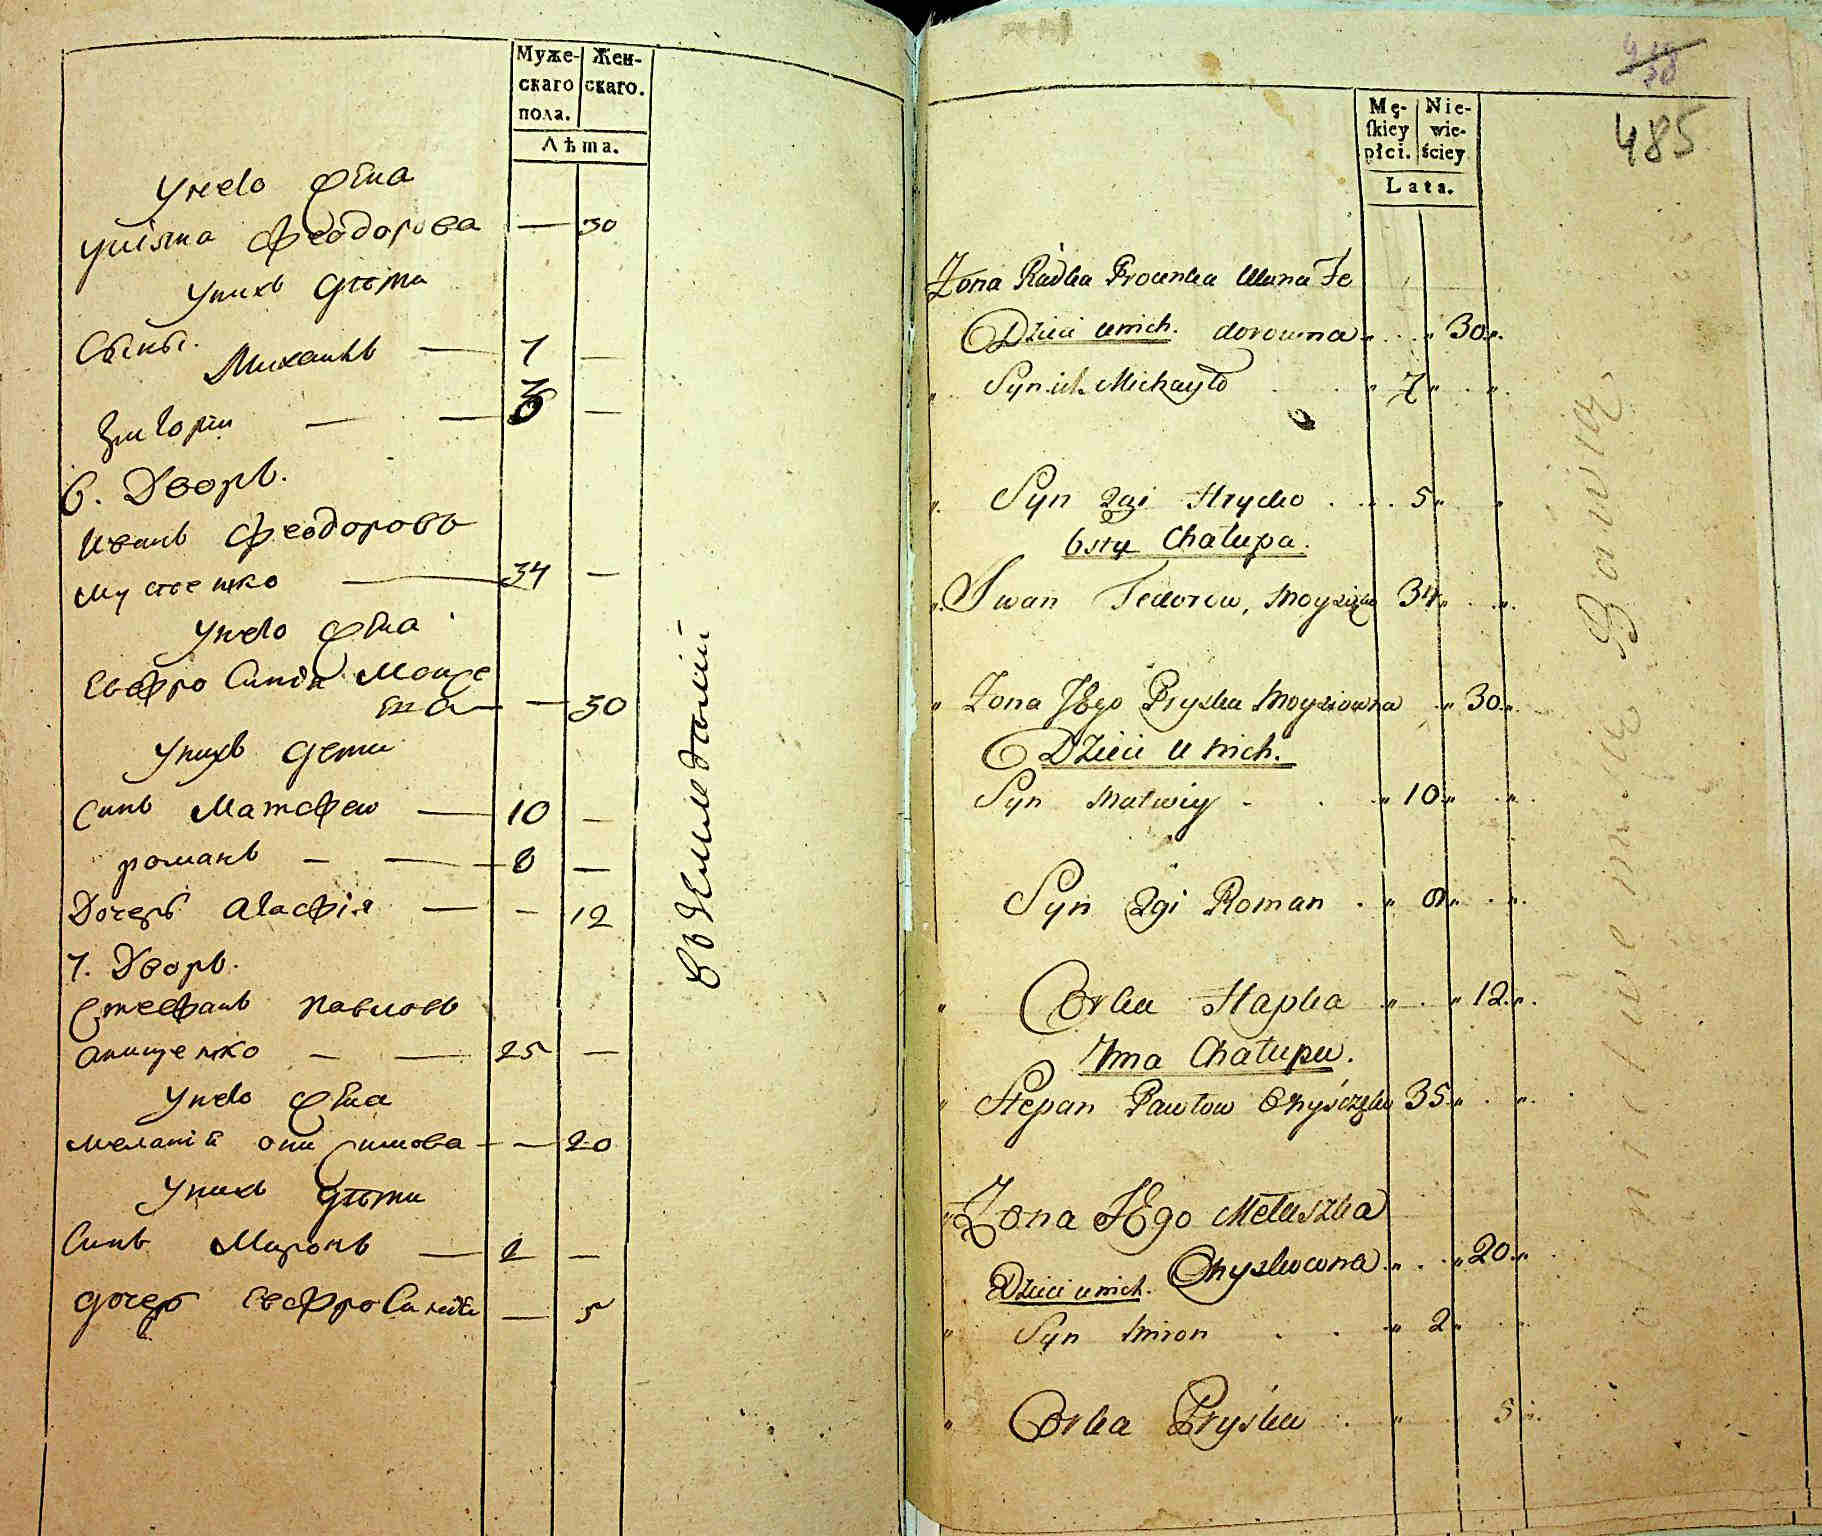 Муже-
скаго
пола.
Жен-
скаго.
Лѣта.
У него жена
Феодорова — 30
У нихъ дѣти
Сыны.
Михаилъ — 7 —
Григорій — 5 —
6. Дворъ.
Иванъ Феодоровъ
34 —
У него жена
Евфросинія Моисе
ева — — 30
У нихъ дети
Синъ Матфей — 10 —
романъ — — 8 —
Дочерь Агафія — — 12
7. Дворъ.
Стефанъ Павловъ
Анищенко — — 25 —
У него жена
Меланія Онисимова — — 20
У нихъ дѣти
Синъ Миронъ — 2 —
дочерь Евфросинія — 5
Mę-
ſkiey
płci.
Nie-
wie-
ściey
Lata.
485
Żona Radka Fe
Dzieci u nich. dorowna 30
Syn ich Michayło 7
Syn 2gi Hrycko 5
6sta Chałupa.
Iwan Fedorow, 34
Żona JEgo Pryska Moysiowna 30
Dzieci u nich.
Syn Matwiy 10
Syn 2gi Roman 8
Corka Hapka 12
7ma Chałupa.
Stepan Pawłow 35
Żona JEgo Melaszka
Onyskowna 20
Dzieci u nich.
Syn Miron 2
Corka Pryśka 5